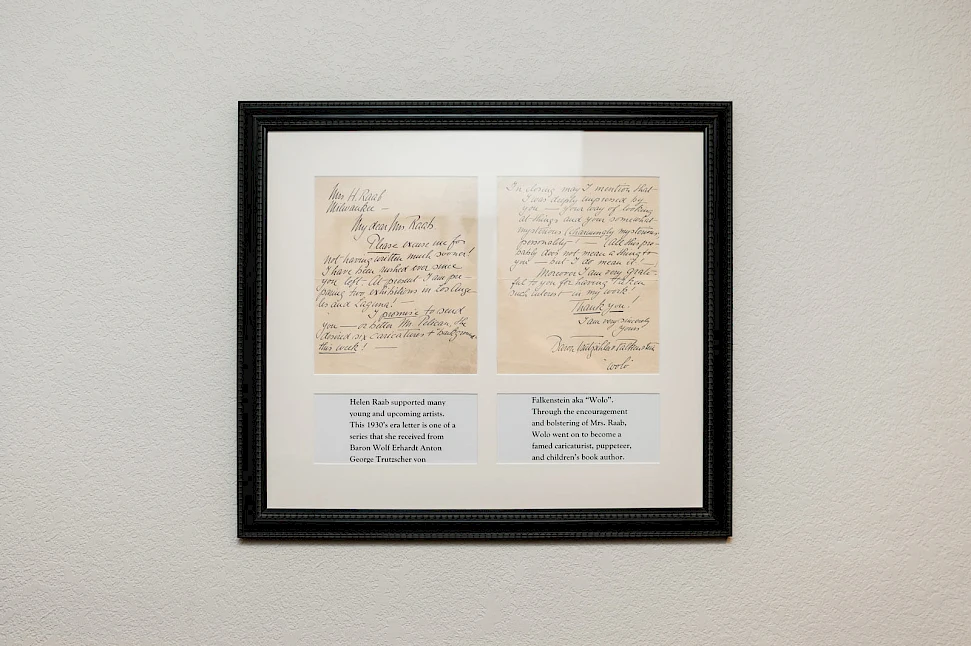 Mrs H. Raab
Milwaukee —
My dear Mrs Raab.
Please excuse me for
not having written much sooner
I have been rushed ever since
you left. At present I am pre-
paring two exhibitions in Los Ange
les and Laguna! —
I promise to send
you — or better Mr. Pelican, the
desired six caricatures +
this week! —
In closing may I mention that
I was deeply impressed by
you — your way of looking
at things and your somewhat
mysterious (charmingly mysterious)
personality! — (all this pro-
bably does not mean a thing to
you — but I do mean it! —)
Moreover I am very grate-
ful to you for having taken
such interest in my work!
Thank you!
I am very sincerely
Yours
Baron
"Wolo"
Helen Raab supported many
young and upcoming artists.
This 1930's era letter is one of a
series that she received from
Baron Wolf Erhardt Anton
George Trutzscher von
Falkenstein aka "Wolo".
Through the encouragement
and bolstering of Mrs. Raab,
Wolo went on to become a
famed caricaturist, puppeteer,
and children's book author.